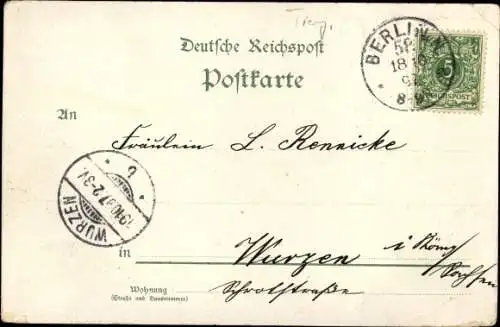 Treq.
Deutsche Reichspost
Postkarte
BERLIN, N.
58
18 10
97
8-9
5
REICHSPOST
An
Fräulein L. Rennicke
WURZEN
19.10.97. 2-3 V.
b
in
Wurzen i/Königr.
Sachsen
Wohnung
(Straße und Hausnummer)
Schrotstraße